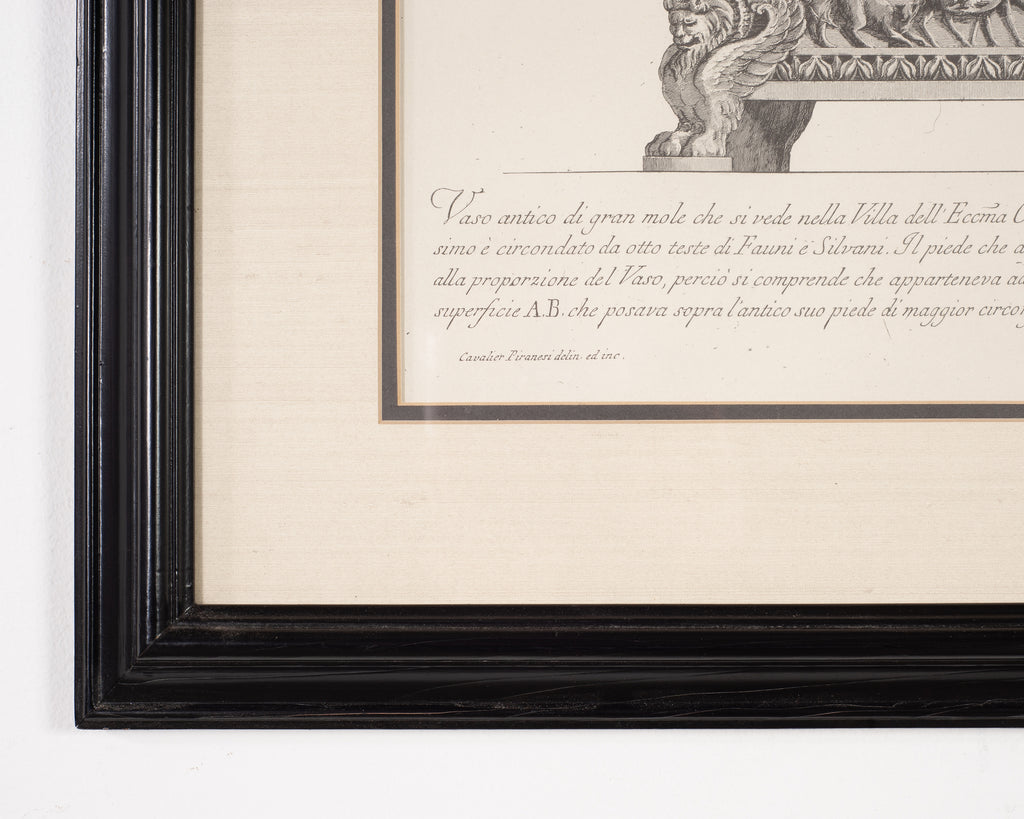 Vaso antico di gran mole che si vede nella Villa dell' Eccm̃a
simo è circondato da otto teste di Fauni è Silvani. Il piede che
alla proporzione del Vaso, perciò si comprende che apparteneva
superficie A.B. che posava sopra l'antico suo piede di maggior
Cavalier Piranesi delin. ed inc.